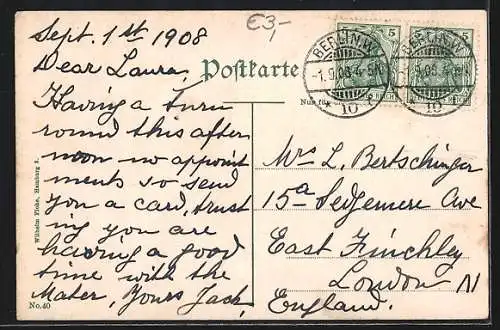 Sept. 1st 1908
€3,-
Dear Laura,
Having a turn
round this after
noon no appoint
ments so send
you a card, trust
ing you are
having a good
time with the
Mater, Yours Jack,
Postkarte
Nur für
BERLIN.W.
-1.9.08.4-5N.
10
5
5
Mrs L. Bertschinger
15a Sedgemere Ave
East Finchley
London N
England.
Wilhelm Finke, Hamburg 3.
No.40